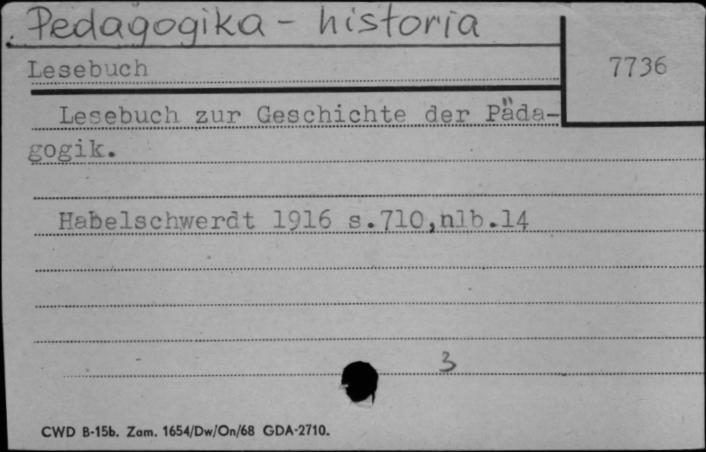 Pedagogika - historia
Lesebuch
7736
Lesebuch zur Geschichte der Päda-
gogik.
Habelschwerdt 1916 s.710,nlb.14
3
CWD B-15b. Zam. 1654/Dw/On/68 GDA-2710.